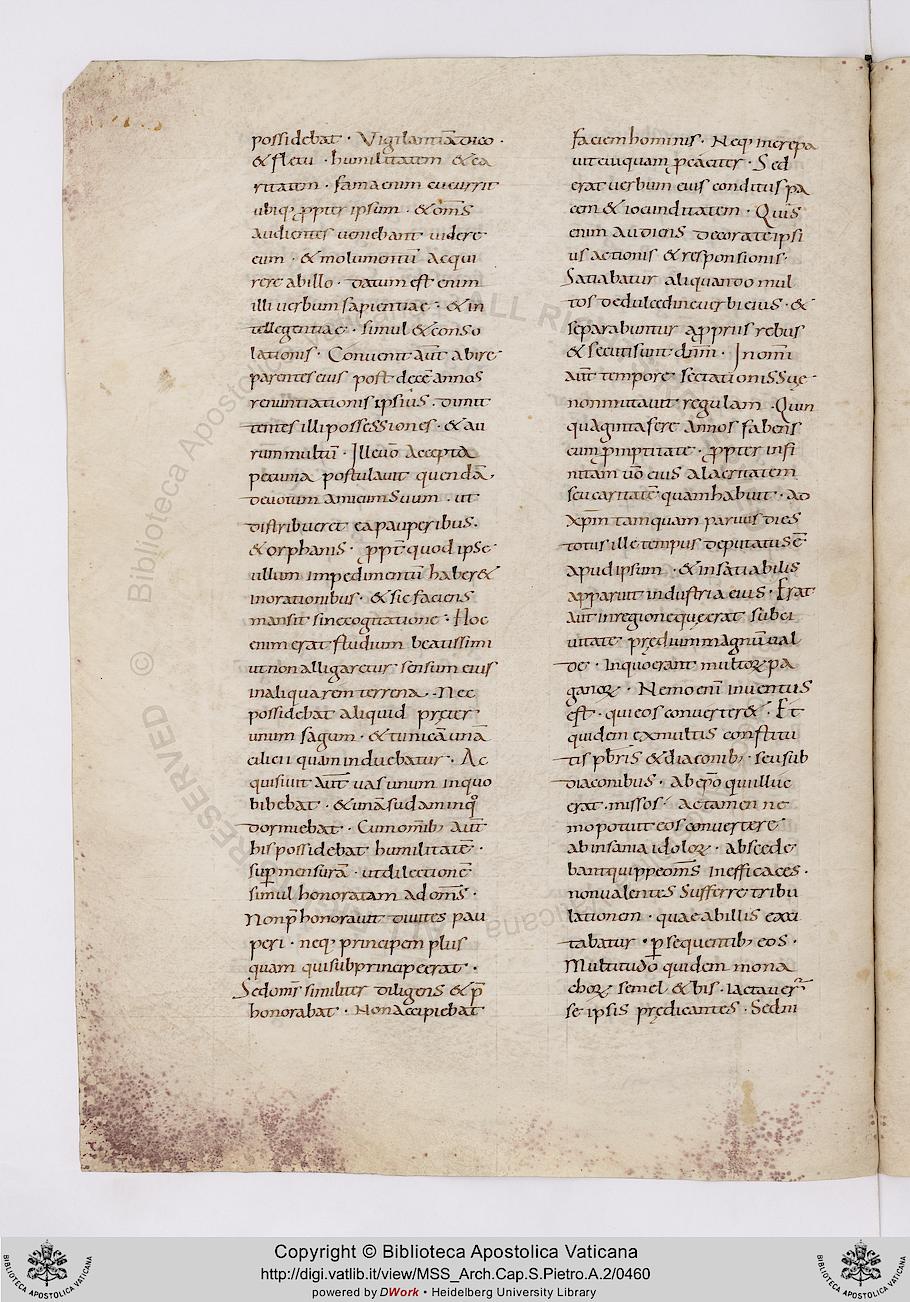 possidebat · Vigilantiā dico ·
& fletū · humilitatem & ca
ritatem · fama enim cucurrit
ubiq; ꝓpter ipsum · & om̅s
audientes veniebant videre
eum · & molumentū acqui
rere ab illo · datum est enim
illi verbum sapientiae · & in
tellegentiae · simul & conso
lationis · Convenit aūt abire
parentes eius post decē annos
renuntiationis ipsius · divit
tentes illi possessiones · & au
rum multū · Ille uō accepta
pecunia postulavit quendā,
devotum amicum suum · ut
distribueret ea pauperibus ·
& orphanis · ꝓpt̄ quod ipse
illum impedimentū haber&
in orationibus · & sic faciens
mansit sine cogitatione · Hoc
enim erat studium beatissimi
ut non alligaretur sensum eius
in aliqua rem terrena · Nec
possidebat aliquid pręter
unum sagum · & tunicā unā
cilicii quam induebatur · Ac
quisivit aūt vas unum in quo
bibebat · & unā sudam in q̊
dormiebat · Cum omib; aūt
his possidebat humilitatē ·
suꝑ mensurā · ut dilectionē
simul honoratam ad om̅s ·
Non p̄ honoravit divites pau
peri · neq; principem plus
quam qui sub principe erat ·
Sed om̅s similiter diligens & p̄
honorabat · Non accipiebat
faciem hominis · Neq; increpa
vit cuiquam ꝓcaciter · Sed
erat verbum eius conditus pa
cem & iocunditatem · Quis
enim audiens decorate ipsi
us actionis & responsionis ·
Satiabatur aliquando mul
tos de dulcedine verbi eius · &
separabuntur a ꝓpriis rebus
& secuti sunt dn̅m · In om̅i
aūt tempore sectationis suę
non mutavit regulam · Quin
quaginta fere annos fabens
cum ꝓmptitate · ꝓpter infi
nitam uō eius alacritatem
seu caritatē quam habuit · ad
xp̅m tamquam parvus dies
totus ille tempus deputatus ē
apud ipsum · & insatiabilis
apparuit industria eius · Erat
aūt in regione quę erat sub ci
vitate prędium magnū val
de · In quo erant multoꝝ pa
ganoꝝ · Nemo enī inventus
est · qui eos converter& · Et
quidem ex multis constitu
tis pb̅ris & diaconib; · seu sub
diaconibus · ab ep̅o qui illuc
erat · missos · Ac tamen ne
mo potuit eos convertere
ab insania idoloꝝ · abscede
bant quippe om̅s inefficaces ·
non valentes sufferre tribu
lationem · quae ab illis exci
tabatur · ꝑsequentib; eos ·
Multitudo quidem mona
choꝝ semel & bis · iactaver̄
se ipsis prędicantes · Sed ni
Copyright © Biblioteca Apostolica Vaticana
http://digi.vatlib.it/view/MSS_Arch.Cap.S.Pietro.A.2/0460
powered by DWork • Heidelberg University Library